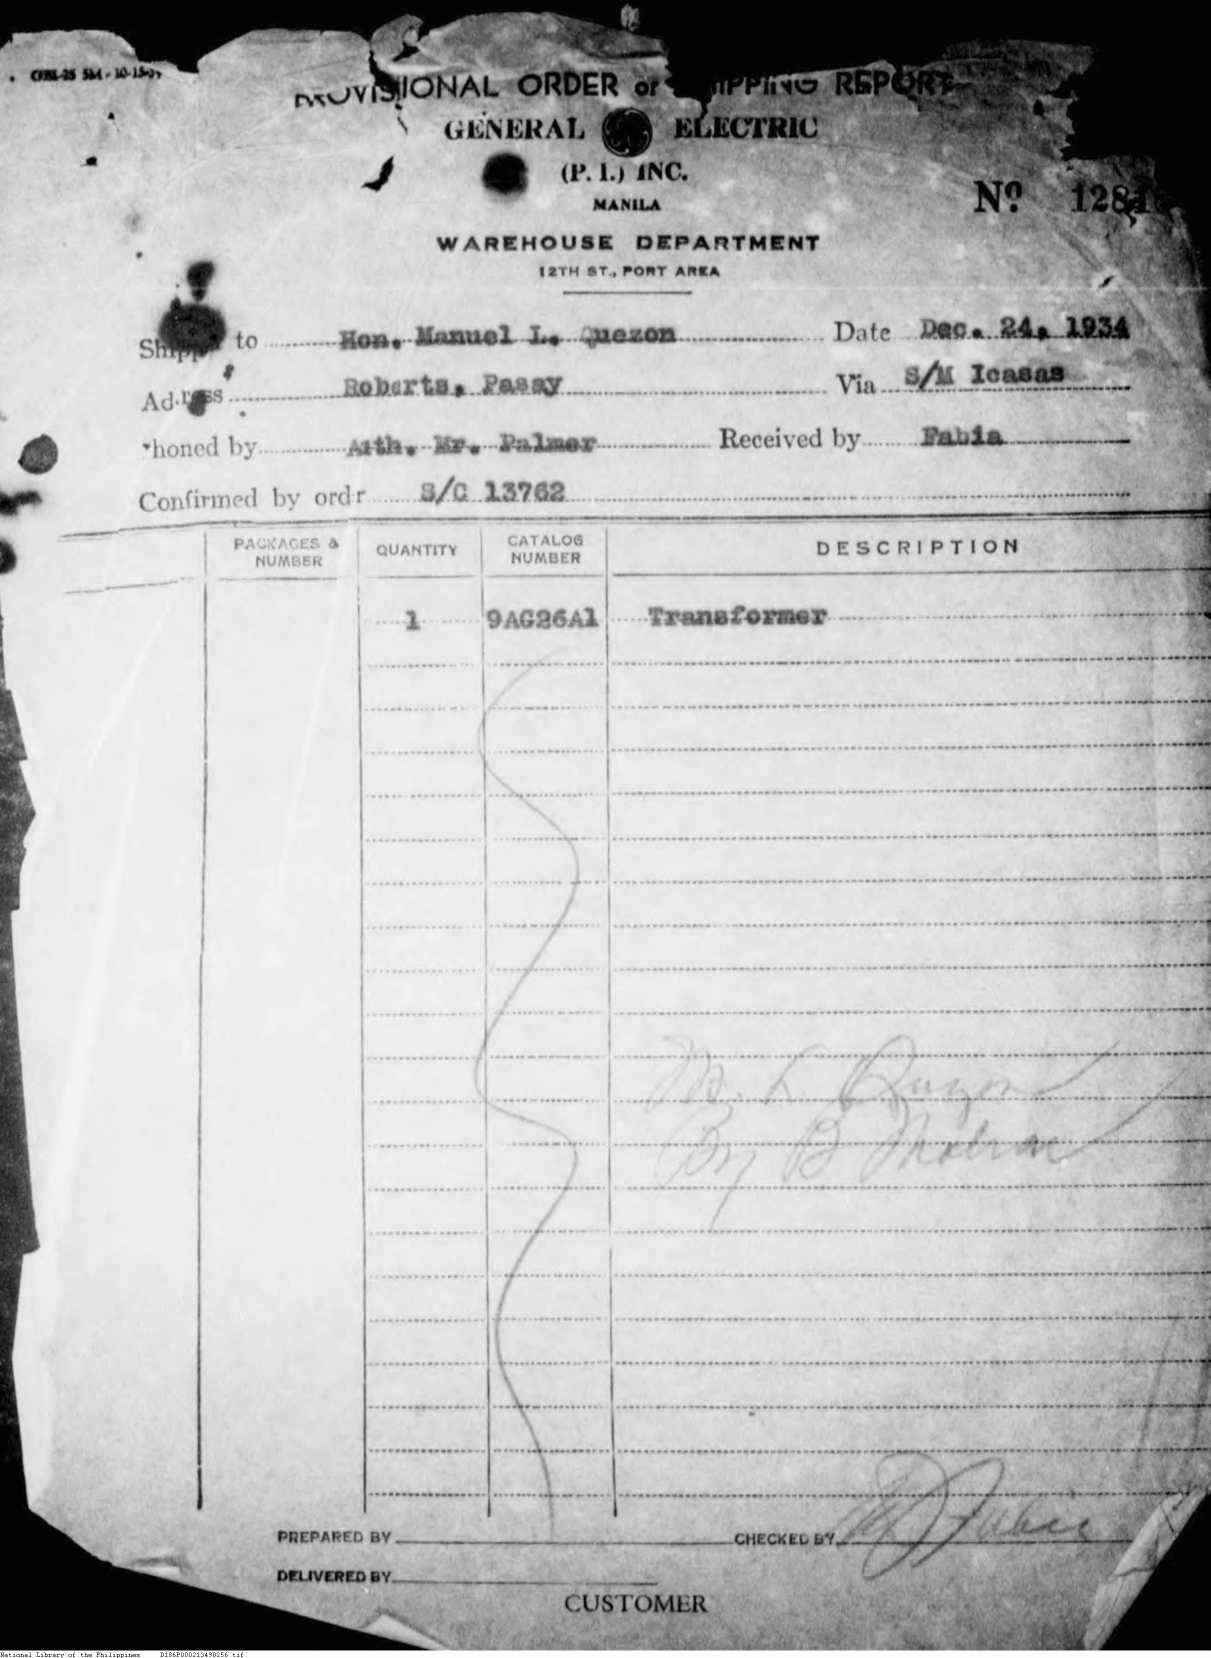 PROVISIONAL ORDER or SHIPPING REPORT
GENERAL ELECTRIC
(P. I.) INC.
MANILA
Nº 1281
WAREHOUSE DEPARTMENT
12TH ST., PORT AREA
Shipp to Hon. Manuel L. Quezon Date Dec. 24, 1934
Adress Roberts, Pasay Via S/M Icasas
honed by Ath. Mr. Palmer Received by Fabia
Confirmed by ordr S/C 13762
PACKAGES & NUMBER QUANTITY CATALOG NUMBER DESCRIPTION
1 9AG26A1 Transformer
M. L. Quezon
By B
PREPARED BY CHECKED BY Fabia
DELIVERED BY
CUSTOMER
National Library of the Philippines D186P000213490256.tif